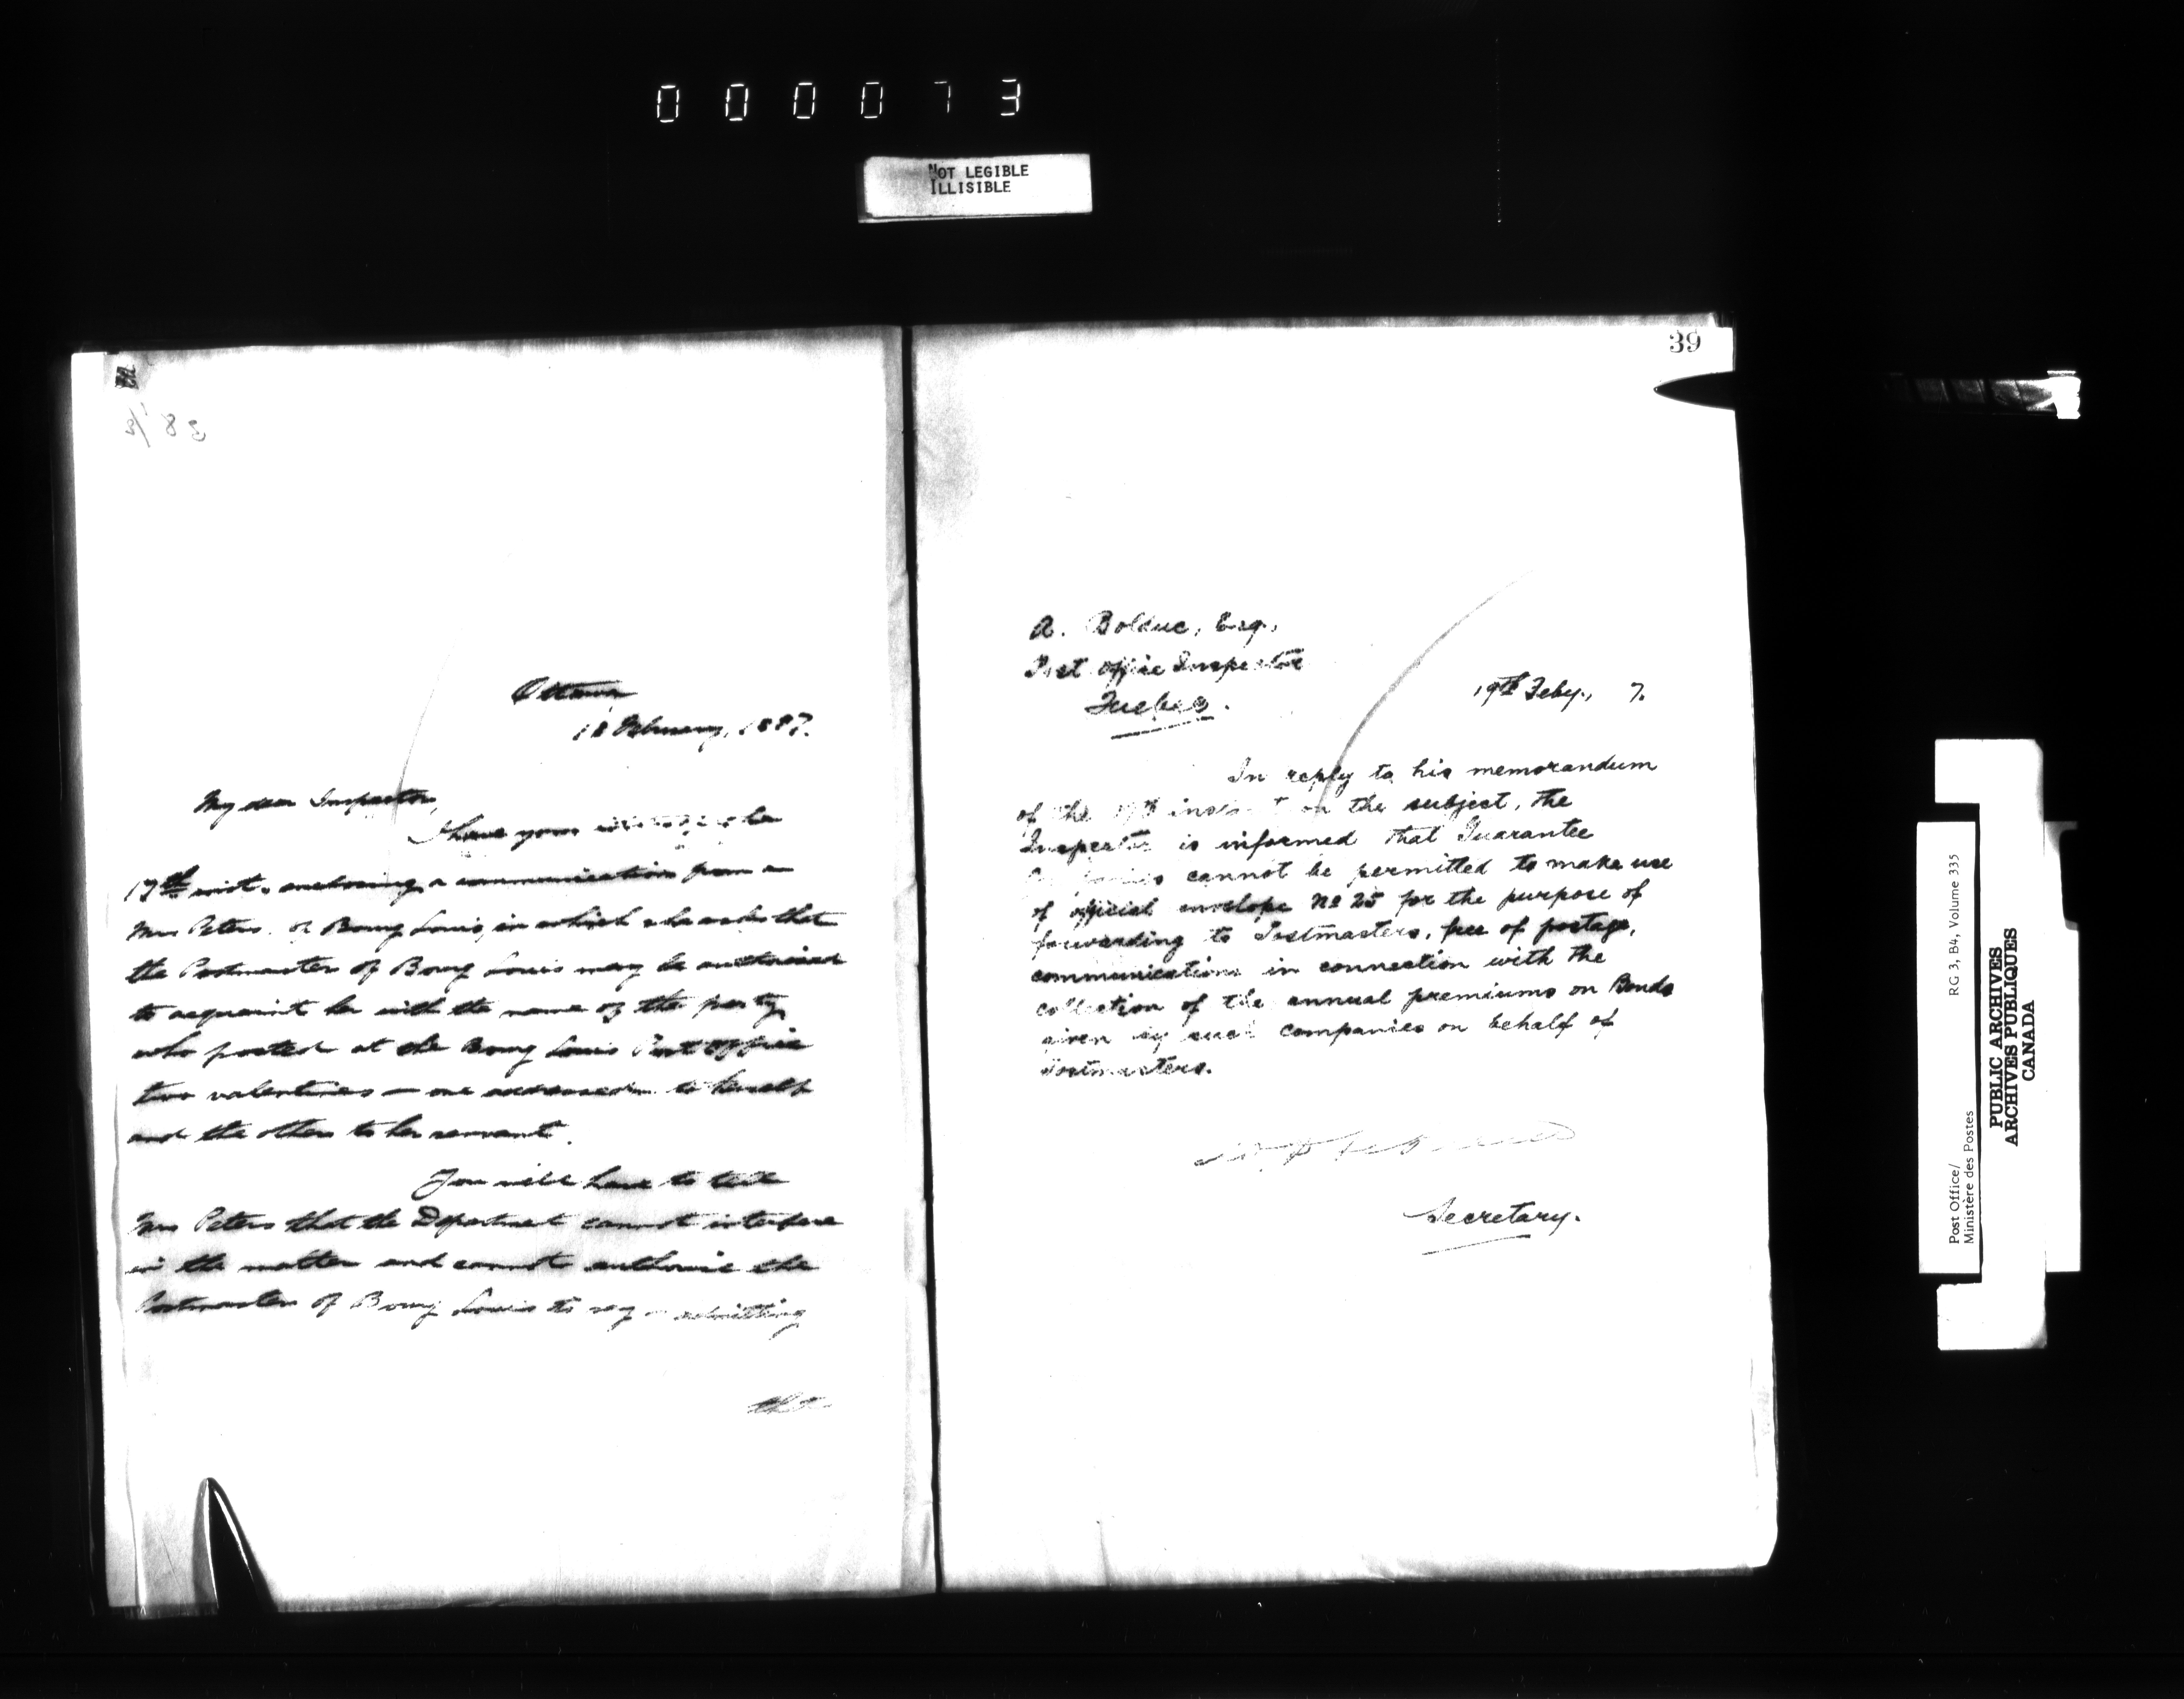 000073
NOT LEGIBLE
ILLISIBLE
39
Ottawa
18 February, 1887.
My dear Inspector,
I have yours of the
17th inst. enclosing a communication from a
Mrs Peters of Bourg Louis, in which she asks that
the Postmaster of Bourg Louis may be authorized
to acquaint her with the name of the party
who posted at the Bourg Louis Post Office
two valentines — one addressed to herself
and the other to her servant.
You will have to tell
Mrs Peters that the Department cannot interfere
in the matter and cannot authorize the
Postmaster of Bourg Louis to say admitting
that
A. Bolduc, Esq.,
Post Office Inspector
Quebec.
19th Feby., 7.
In reply to his memorandum
of the 17th instant on the subject, the
Inspector is informed that Guarantee
Companies cannot be permitted to make use
of official envelope No 25 for the purpose of
forwarding to Postmasters, free of postage,
communications in connection with the
collection of the annual premiums on Bonds
given by such companies on behalf of
Postmasters.
Secretary.
Post Office/ RG 3, B4, Volume 335
Ministère des Postes
PUBLIC ARCHIVES
ARCHIVES PUBLIQUES
CANADA